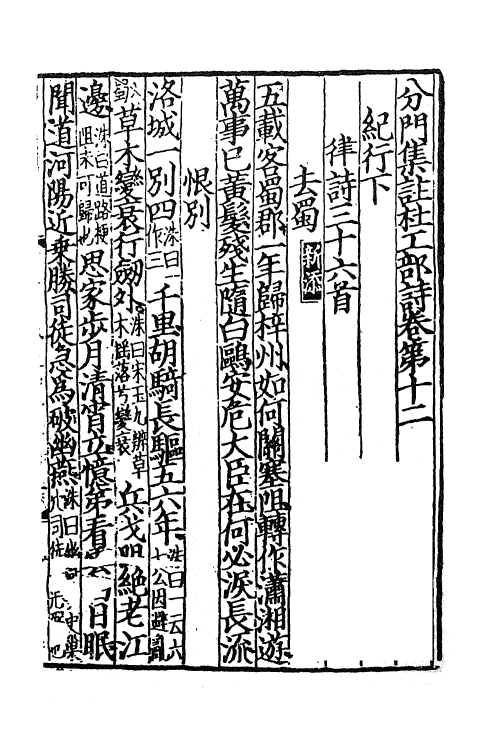 分門集註杜工部詩卷第十二
紀行下
律詩三十六首
去蜀 新添
五載客蜀郡一年歸梓州如何關塞阻轉作瀟湘遊
萬事已黃髮殘生隨白鷗安危大臣在何必淚長流
恨別
洛城一別四 洙曰一作三 千里胡騎長驅五六年 洙曰一云六七公因避亂
蜀 草木變衰行劒外 洙曰宋玉九辯草木揺落兮變衰 兵戈阻絕老江
邊 洙曰道路梗阻未可歸也 思家步月清宵立憶弟看雲白日眠
聞道河陽近乗勝司徒急為破幽燕 洙曰 司徒